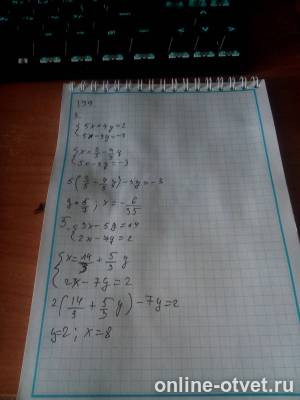 199
3.
{5x+4y=2
5x-3y=-3
{x=2/5-4/5y
5x-3y=-3
5(2/5-4/5y)-3y=-3
y=5/7; x=-6/35
5. {3x-5y=14
2x-7y=2
{x=14/3+5/3y
2x-7y=2
2(14/3+5/3y)-7y=2
y=2; x=8
online-otvet.ru